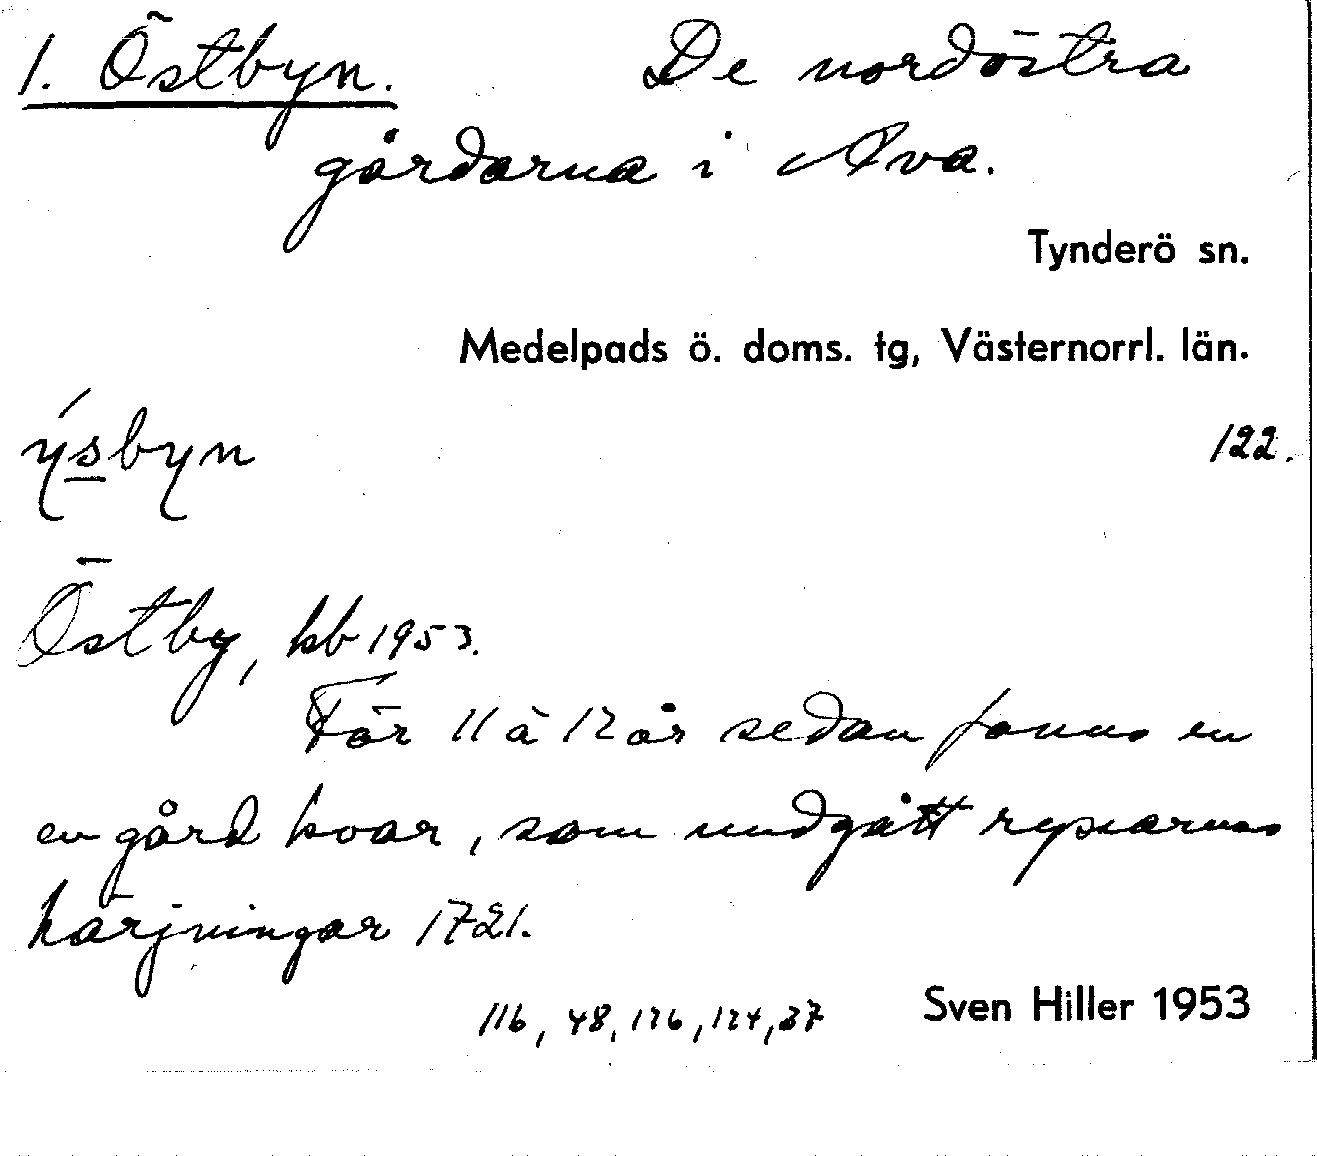 1. Östbyn. De nordöstra
gårdarna i Åva.
Tynderö sn.
Medelpads ö. doms. tg, Västernorrl. län.
ýsbyn
122.
Östby, kb 1953.
För 11 à 12 år sedan fanns en
en gård kvar, som undgått ryssarnas
härjningar 1721.
116, 48, 126, 124, 37
Sven Hiller 1953